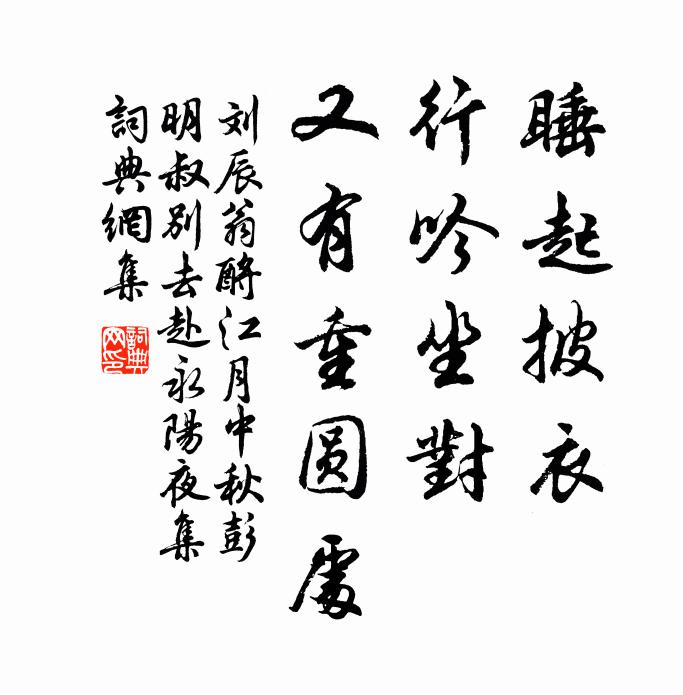 睡起披衣
行吟坐對
又有重圆處
刘辰翁酹江月中秋彭
明叔别去赴永陽夜集
詞典網集
詞典
网印